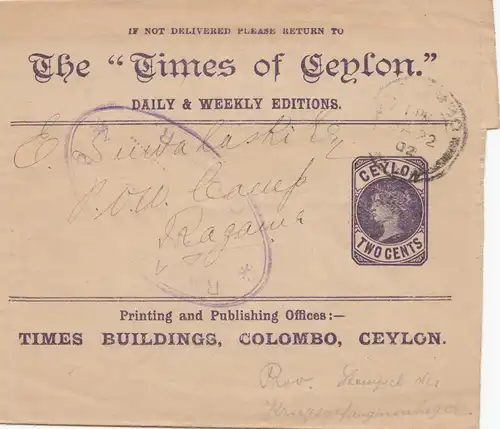 IF NOT DELIVERED PLEASE RETURN TO
The "Times of Ceylon."
DAILY & WEEKLY EDITIONS.
22
02
E. Suwalaski Esq
P.O.W. Camp
Ragama
CEYLON
TWO CENTS
Printing and Publishing Offices:—
TIMES BUILDINGS, COLOMBO, CEYLON.
Prov. Stempel des
Kriegsgefangenenlager